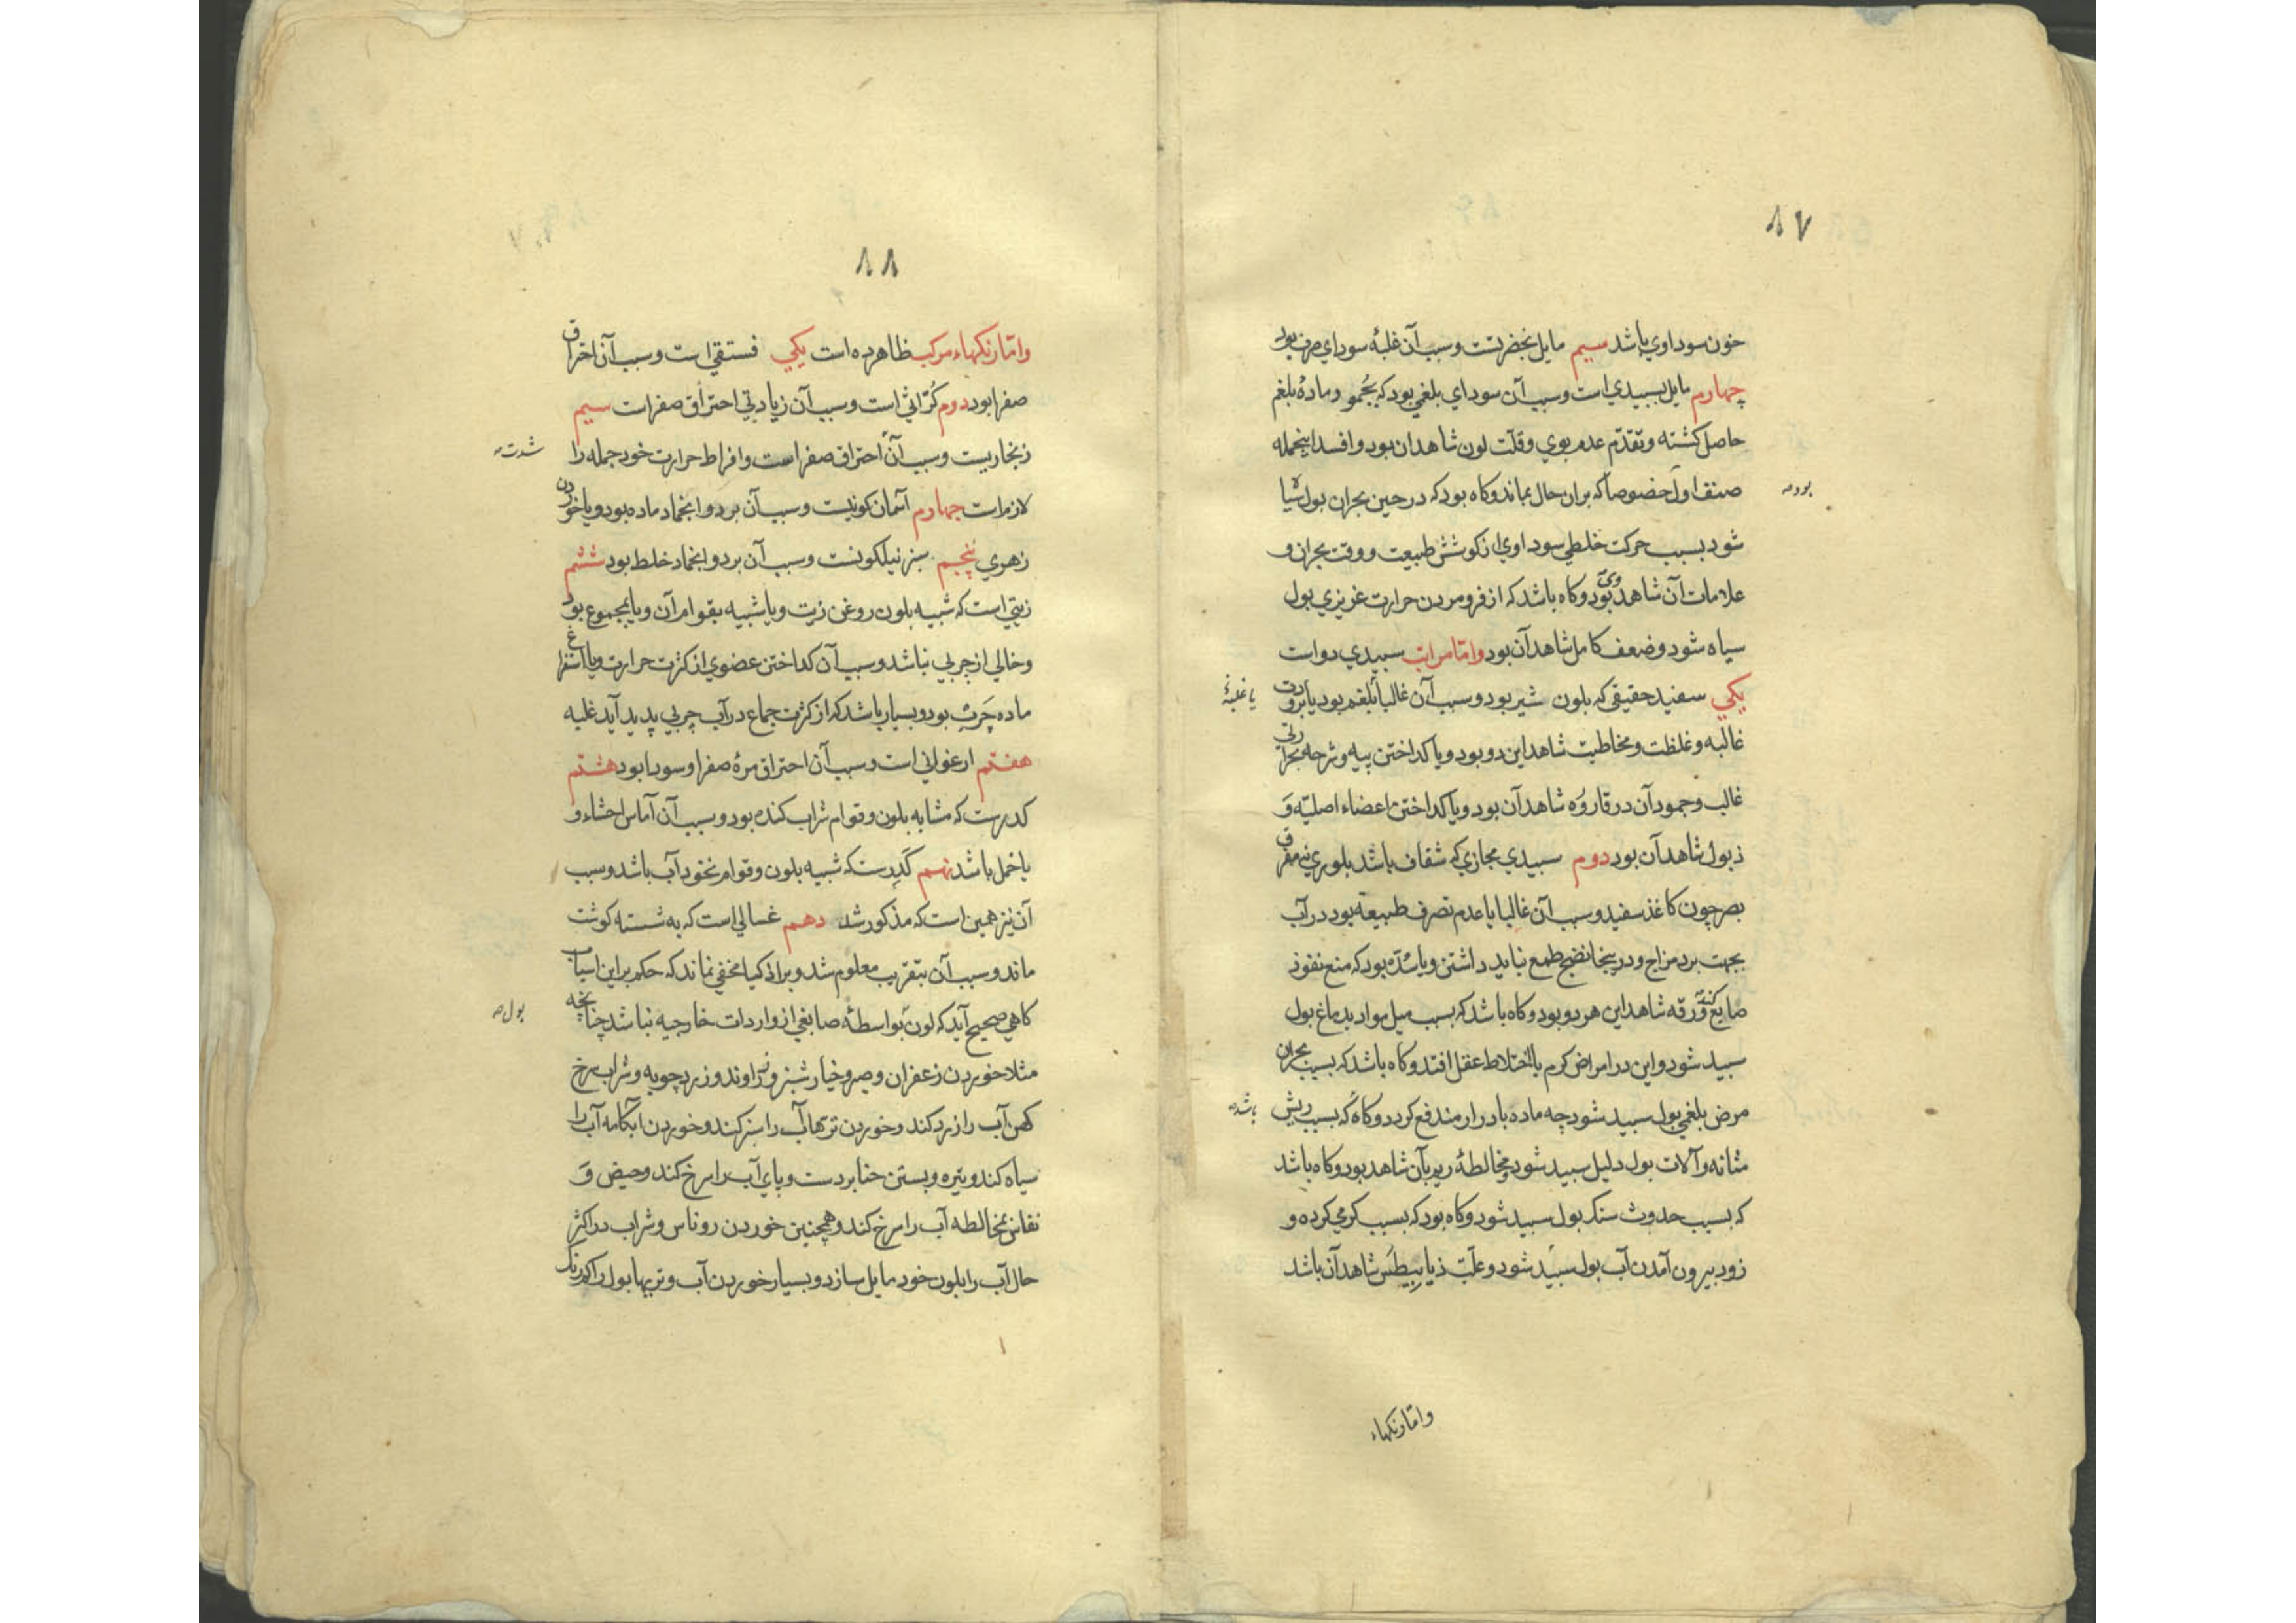 ۸۷
خون سوداوي باشد سيم مايل بخضرتست وسبب آن غلبهٔ سوداي صرف بود
چهارم مايل بسپيدي است وسبب آن سوداي بلغمي بود كه بجمود مادهٔ بلغم
حاصل كشته وتقدم عدم بوي وقلت لون شاهد آن بود وافسد اينجمله
صنف اول خصوصاً كه بران حال بماند وكاه بود كه در حين بحران بول سياه
بود صه
شود بسبب حركت خلطي سوداوي از كوشش طبيعت ووقت بحران و
علامات آن شاهد وي بود وكاه باشد كه از فرو مردن حرارت غريزي بول
سياه شود وضعف كامل شاهد آن بود واما مراتب سپيدي دو است
يكي سفيد حقيقي كه بلون شير بود وسبب آن غالباً بلغم بود يا برودت
يا غلبهٔ
غالبه وغلظت ومخاطيت شاهد اين دو بود ويا كداختن پيه وثرب وحرارتي
غالب وجمود آن در قاروره شاهد آن بود ويا كداختن اعضاء اصليه و
ذبول شاهد آن بود دوم سپيدي مجازي كه شفاف باشد بلوري نه مفرق
بصر چون كاغذ سفيد وسبب آن غالبا يا عدم تصرف طبيعة بود در آب
بجهت برد مزاج ودرينجا نضج طمع نبايد داشتن ويا سده بود كه منع نفوذ
صابغ كند ورقه شاهد اين هر دو بود وكاه باشد كه بسبب ميل مواد بدماغ بول
سپيد شود واين در امراض كرم با اختلاط عقل افتد وكاه باشد كه بسبب بحران
مرض بلغمي بول سپيد شود چه ماده بادرار مندفع كردد وكاه كه بسبب ريش
باشد صه
مثانه وآلات بول دليل سپيد شود ومخالطهٔ ريم بآن شاهد بود وكاه باشد
كه بسبب حدوث سنك بول سپيد شود وكاه بود كه بسبب كرمي كرده و
زود بيرون آمدن آب بول سپيد شود وعلت ذيابيطس شاهد آن باشد
واما رنكهاء
۸۸
واما رنكهاء مركب ظاهر ده است يكي فستقي است وسبب آن احتراق
صفرا بود دوم كراثي است وسبب آن زيادتي احتراق صفراست سيم
زنجاريست وسبب آن احتراق صفراست وافراط حرارت خود جمله را
شدت صه
لازمست چهارم آسمان كونيست وسبب آن برد وانجماد ماده بود ويا خوردن
زهري پنجم سبز نيلكونست وسبب آن برد وانجماد خلط بود ششم
زيتي است كه شبيه بلون روغن زيت ويا شبيه بقوام آن ويا بمجموع بود
وخالي از چربي نباشد وسبب آن كداختن عضوي از كثرت حرارت ويا استفراغ
ماده چرب بود وبسيار باشد كه از كثرت جماع در آب چربي پديد آيد غلبه
هفتم ارغواني است وسبب آن احتراق مرهٔ صفرا وسودا بود هشتم
كدرست كه مشابه بلون وقوام شراب كنده بود وسبب آن آماس احشاء و
يا حمل باشد نهم كدرست كه شبيه بلون وقوام نخود آب باشد وسبب
آن نيز همين است كه مذكور شد دهم غسالي است كه به شسته كوشت
ماند وسبب آن بتقريب معلوم شد وبر اذكيا مخفي نماند كه حكم بر اين اسباب
كاهي صحيح آيد كه لون بواسطهٔ صابغي از واردات خارجيه نباشد چنانچه
بول صه
مثلا خوردن زعفران وصبر وخيار شنبر وراوند وزردچوبه وشراب سرخ
كهن آب را زرد كند وخوردن ترهها آب را سبز كند وخوردن آبكامه آب را
سياه كند وتيره وبستن حنا بر دست وپاي آب را سرخ كند وحيض و
نفاس بمخالطه آب را سرخ كند وهمچنين خوردن روناس وشراب در اكثر
حال آب را بلون خود مايل سازد وبسيار خوردن آب وتريها بول را كم رنك